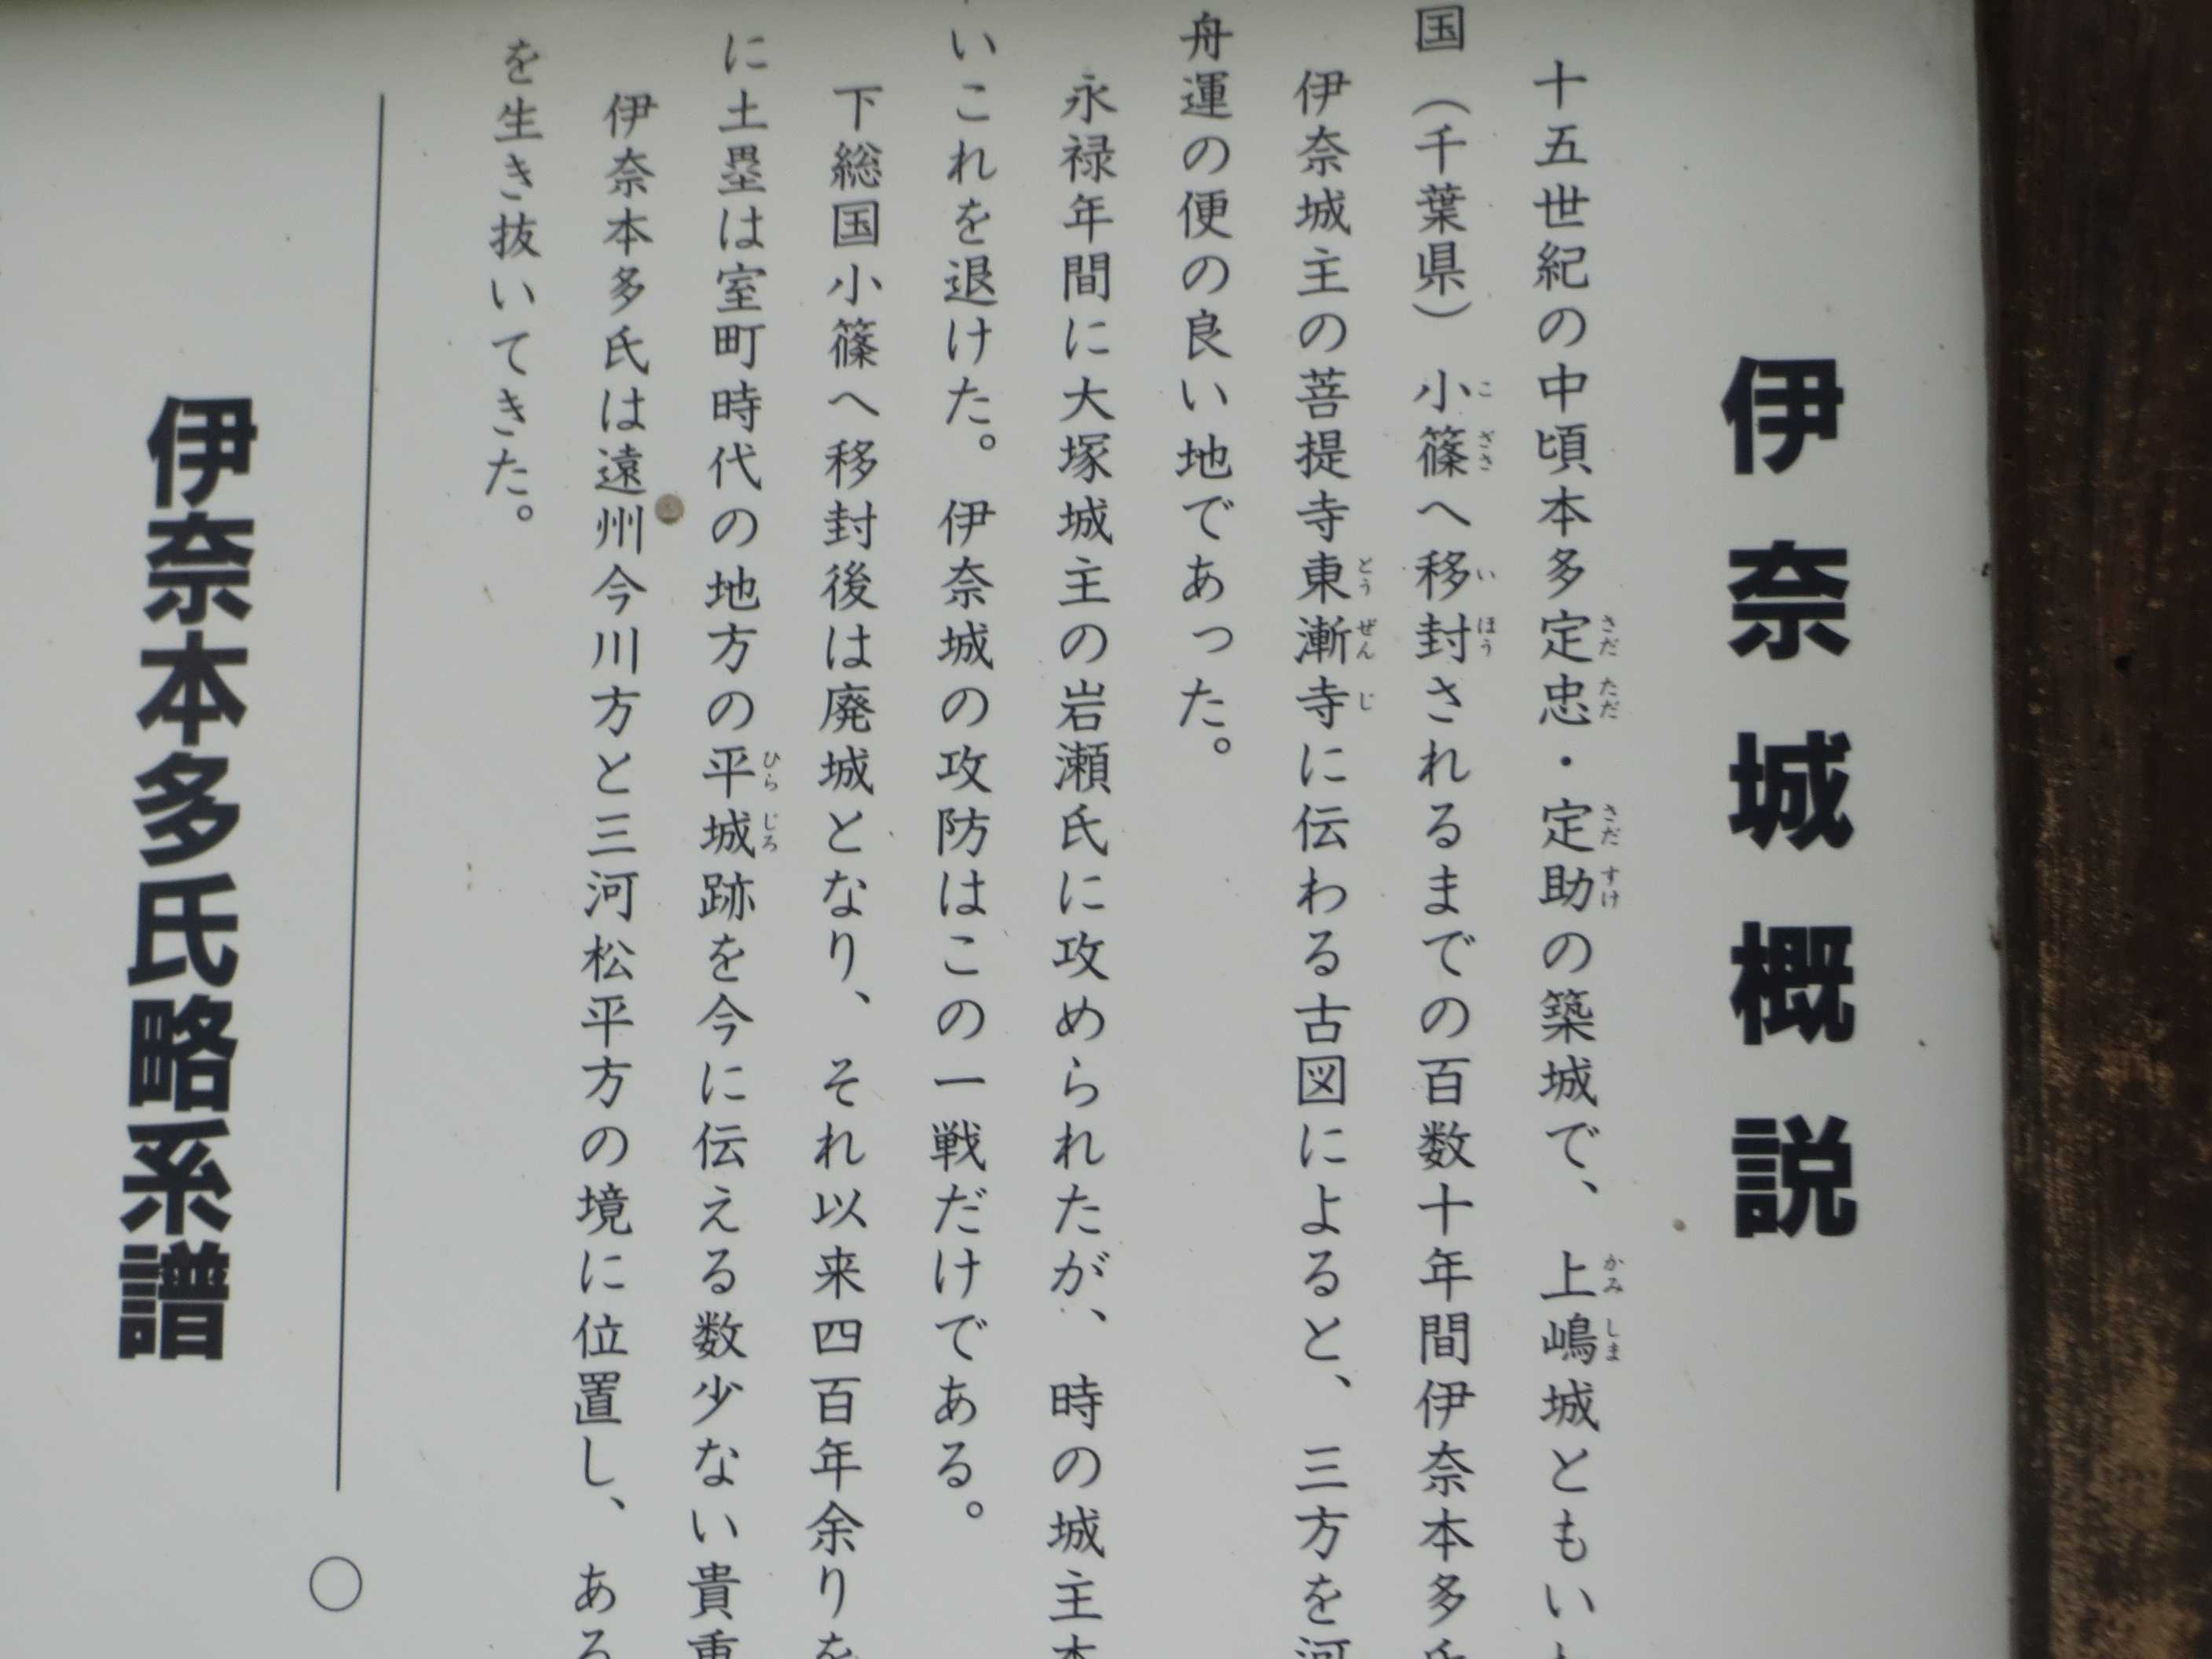 伊奈城概説
十五世紀の中頃本多定忠・定助の築城で、上嶋城ともい
国（千葉県）小篠へ移封されるまでの百数十年間伊奈本多氏
伊奈城主の菩提寺東漸寺に伝わる古図によると、三方を河
舟運の便の良い地であった。
永禄年間に大塚城主の岩瀬氏に攻められたが、時の城主本
いこれを退けた。伊奈城の攻防はこの一戦だけである。
下総国小篠へ移封後は廃城となり、それ以来四百年余りを
に土塁は室町時代の地方の平城跡を今に伝える数少ない貴重
伊奈本多氏は遠州今川方と三河松平方の境に位置し、ある
を生き抜いてきた。
伊奈本多氏略系譜